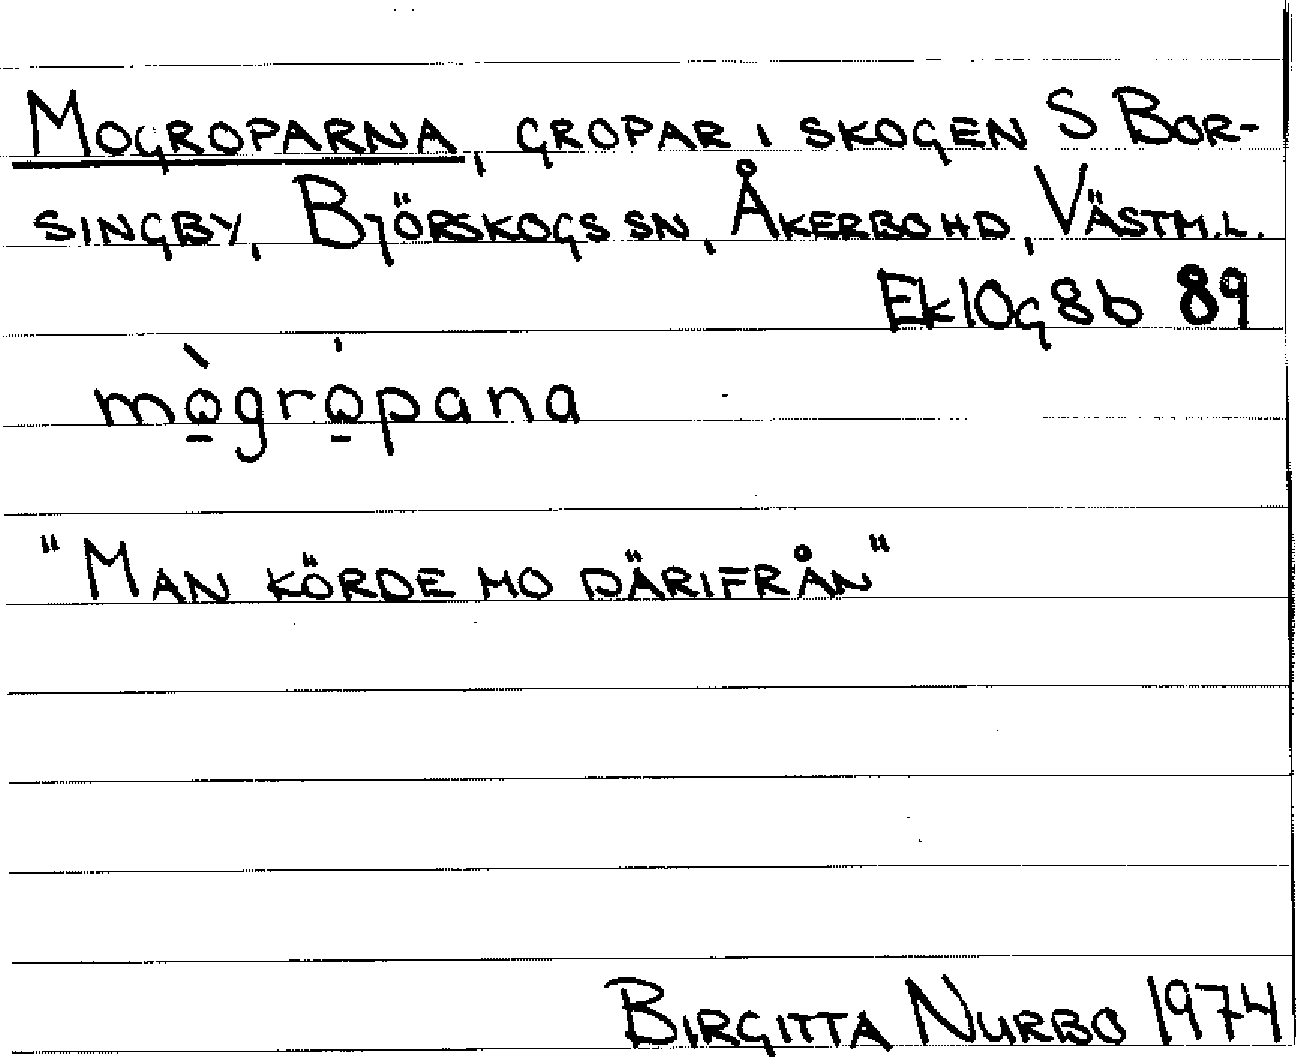 Mogroparna, gropar i skogen S Bor-
singby, Björskogs sn, Åkerbo hd, Västm.l.
Ek 10g8b 89
mò̱gró̱pana
"Man körde mo därifrån"
Birgitta Nurbo 1974